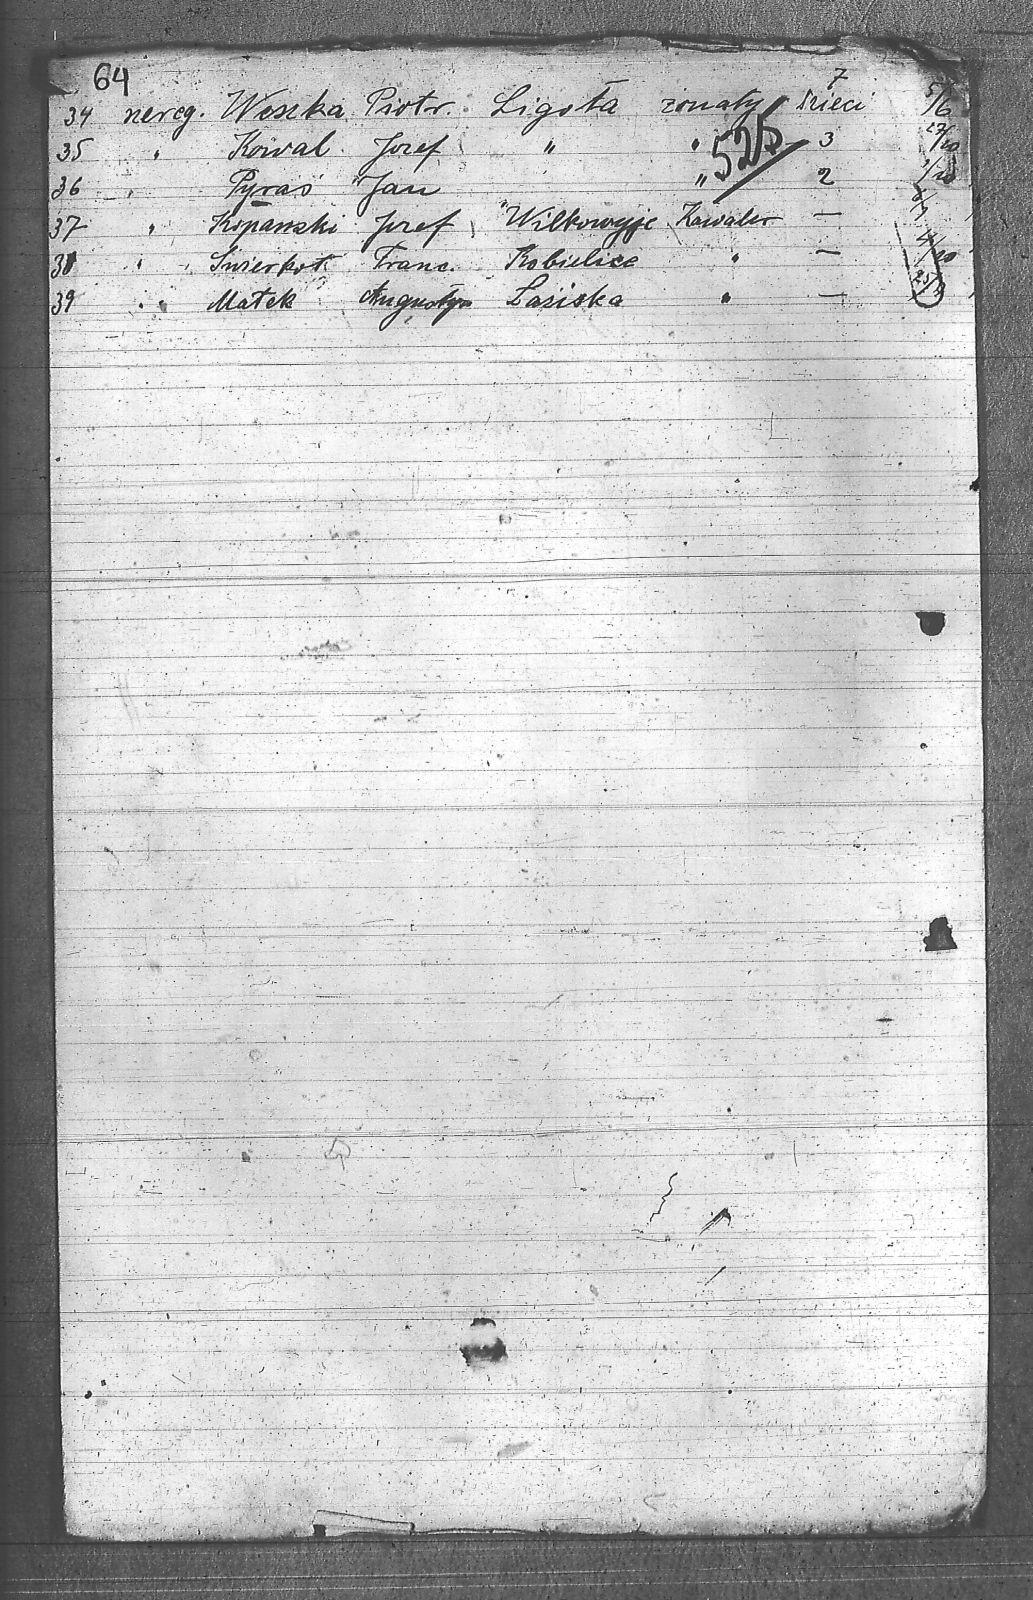 64
34 nereg. Woszka Piotr. Ligota żonaty 7 dzieci 5/6
35 " Kowal Jozef " " 3
525
36 " Pyras Jan " " 2
37 " Kopanski Jozef Wilkowyje Kawaler —
38 " Swierkot Franc. Kobielice " —
39 " Matek Augustyn Łaziska " —